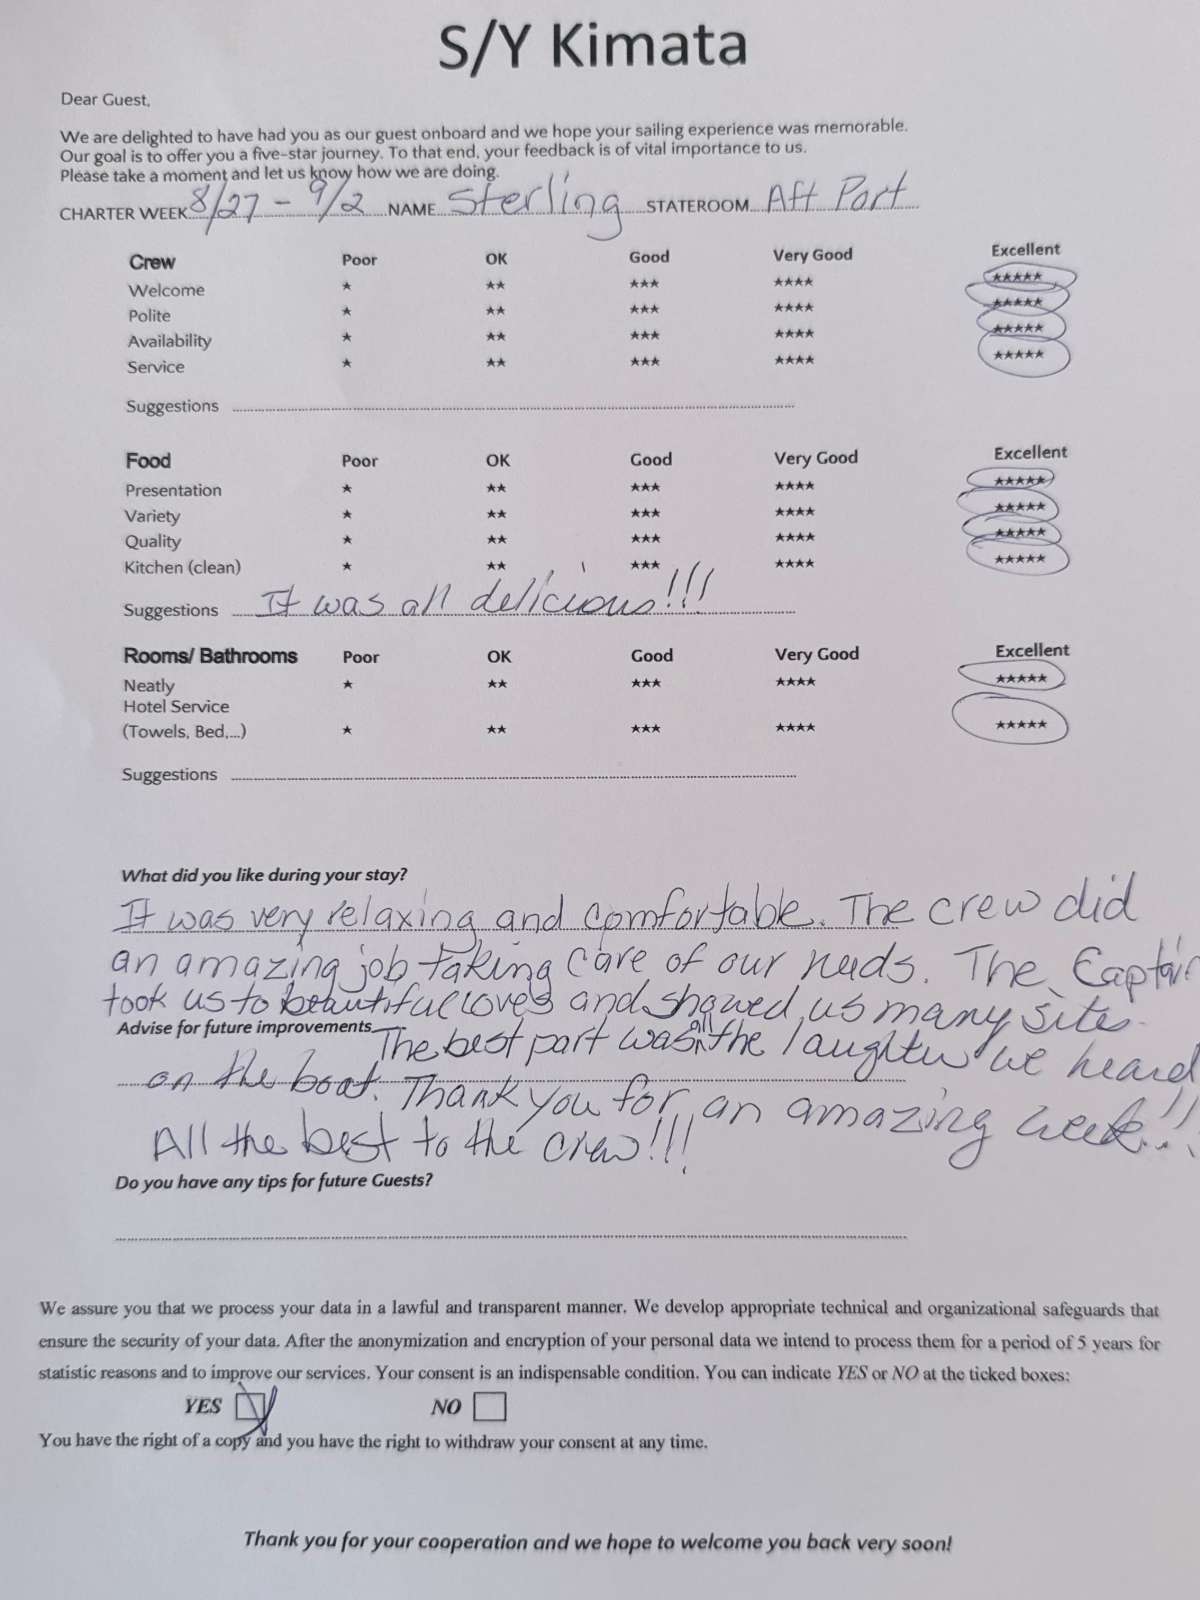 S/Y Kimata
Dear Guest,
We are delighted to have had you as our guest onboard and we hope your sailing experience was memorable.
Our goal is to offer you a five-star journey. To that end, your feedback is of vital importance to us.
Please take a moment and let us know how we are doing.
CHARTER WEEK 8/27 - 9/2 NAME Sterling STATEROOM Aft Port
Crew Poor OK Good Very Good Excellent
Welcome ★ ★★ ★★★ ★★★★ ★★★★★
Polite ★ ★★ ★★★ ★★★★ ★★★★★
Availability ★ ★★ ★★★ ★★★★ ★★★★★
Service ★ ★★ ★★★ ★★★★ ★★★★★
Suggestions
Food Poor OK Good Very Good Excellent
Presentation ★ ★★ ★★★ ★★★★ ★★★★★
Variety ★ ★★ ★★★ ★★★★ ★★★★★
Quality ★ ★★ ★★★ ★★★★ ★★★★★
Kitchen (clean) ★ ★★ ★★★ ★★★★ ★★★★★
Suggestions It was all delicious!!!
Rooms/ Bathrooms Poor OK Good Very Good Excellent
Neatly ★ ★★ ★★★ ★★★★ ★★★★★
Hotel Service
(Towels, Bed,...) ★ ★★ ★★★ ★★★★ ★★★★★
Suggestions
What did you like during your stay?
It was very relaxing and comfortable. The crew did
an amazing job taking care of our needs. The Captain
took us to beautiful coves and showed us many sites.
Advise for future improvements
The best part was all the laughter we heard
on the boat. Thank you for an amazing week!!!
All the best to the crew!!!
Do you have any tips for future Guests?
We assure you that we process your data in a lawful and transparent manner. We develop appropriate technical and organizational safeguards that
ensure the security of your data. After the anonymization and encryption of your personal data we intend to process them for a period of 5 years for
statistic reasons and to improve our services. Your consent is an indispensable condition. You can indicate YES or NO at the ticked boxes:
YES NO
You have the right of a copy and you have the right to withdraw your consent at any time.
Thank you for your cooperation and we hope to welcome you back very soon!